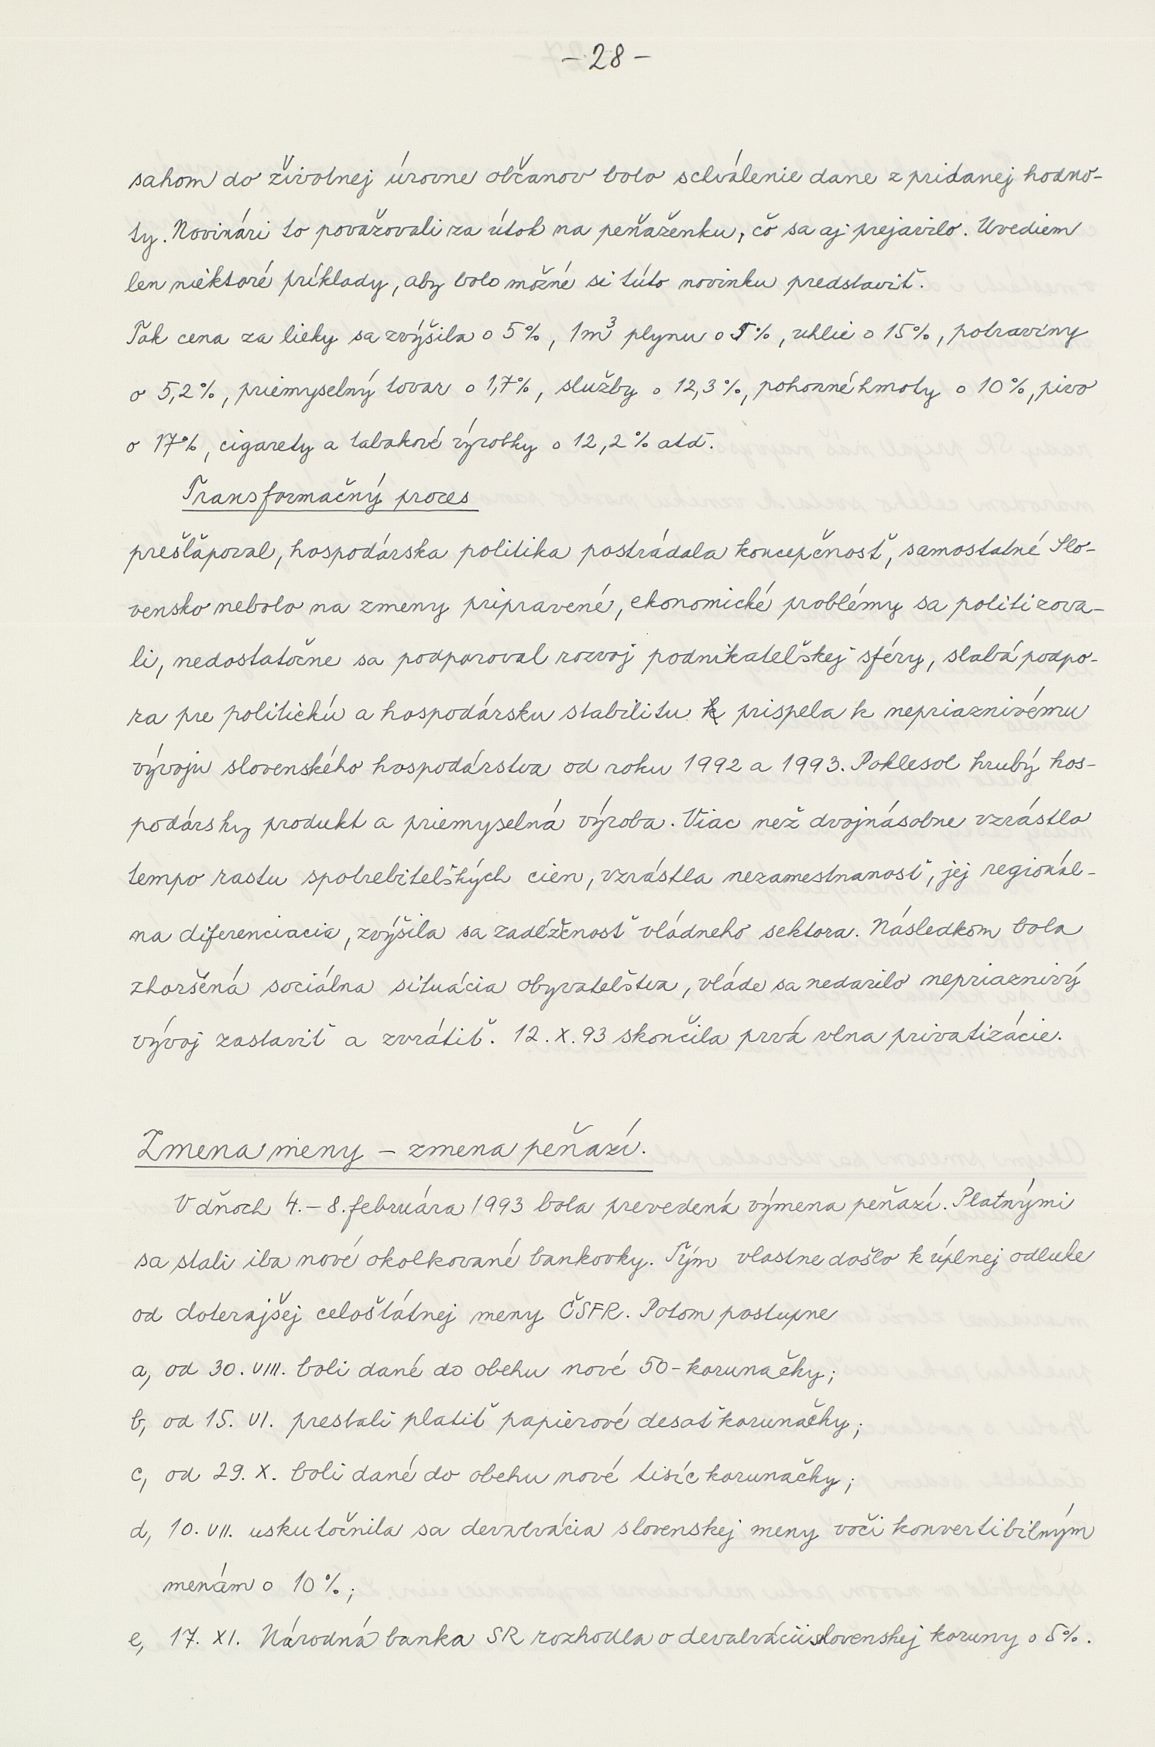 - 28 -
sahom do životnej úrovne občanov bolo schválenie dane z pridanej hodno-
ty. Novinári to považovali za útok na peňaženku, čo sa aj prejavilo. Uvediem
len niektoré príklady, aby bolo možné si túto novinku predstaviť.
Tak cena za lieky sa zvýšila o 5%, 1m³ plynu o 5%, uhlie o 15%, potraviny
o 5,2%, priemyselný tovar o 1,7%, služby o 12,3%, pohonné hmoty o 10%, pivo
o 17%, cigarety a tabakové výrobky o 12,2% atď.
Transformačný proces
prešľapoval, hospodárska politika postrádala koncepčnosť, samostatné Slo-
vensko nebolo na zmeny pripravené, ekonomické problémy sa politizova-
li, nedostatočne sa podporoval rozvoj podnikateľskej sféry, slabá podpo-
ra pre politickú a hospodársku stabilitu prispela k nepriaznivému
vývoju slovenského hospodárstva od roku 1992 a 1993. Poklesol hrubý hos-
podársky produkt a priemyselná výroba. Viac než dvojnásobne vzrástlo
tempo rastu spotrebiteľských cien, vzrástla nezamestnanosť, jej regionál-
na diferenciacia, zvýšila sa zadĺženosť vládneho sektora. Následkom bola
zhoršená sociálna situácia obyvateľstva, vláde sa nedarilo nepriaznivý
vývoj zastaviť a zvrátiť. 12. X. 93 skončila prvá vlna privatizácie.
Zmena meny – zmena peňazí.
V dňoch 4. – 8. februára 1993 bola prevedená výmena peňazí. Platnými
sa stali iba nové okolkované bankovky. Tým vlastne došlo k úplnej odluke
od doterajšej celoštátnej meny ČSFR. Potom postupne
a, od 30. VIII. boli dané do obehu nové 50-korunačky;
b, od 15. VI. prestali platiť papierové desaťkorunačky;
c, od 29. X. boli dané do obehu nové tisíckorunačky;
d, 10. VII. uskutočnila sa devalvácia slovenskej meny voči konvertibilným
menám o 10%;
e, 17. XI. Národná banka SR rozhodla o devalvácii slovenskej koruny o 5%.